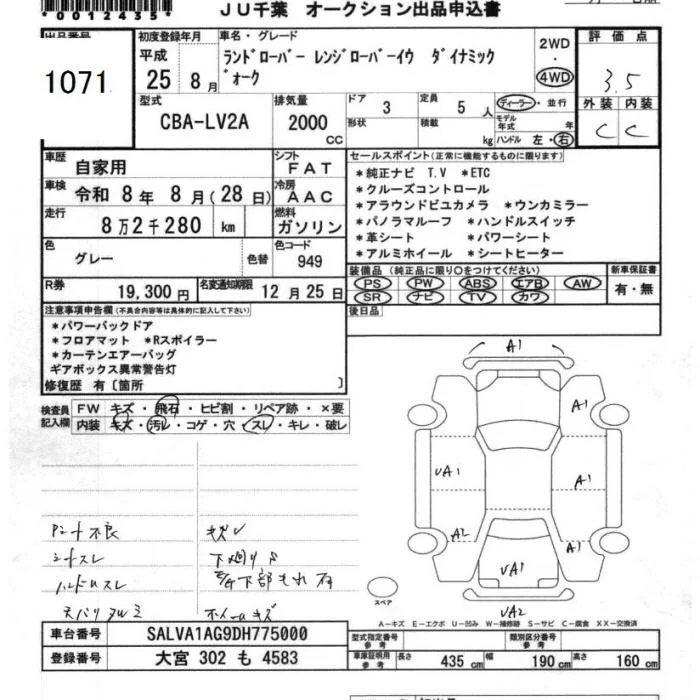 *0012435*
JU千葉 オークション出品申込書
出品番号
1071
初度登録年月
平成
25 8月
車名・グレード
ランドローバー レンジローバーイヴ ダイナミック
ヴォーク
2WD
・
4WD
評価点
3.5
外装 内装
C C
型式
CBA-LV2A
排気量
2000
CC
ドア 3
定員 5 人
形状
積載 kg
ディーラー・並行
モデル年式 年
ハンドル 左・右
車歴 自家用
シフト FAT
車検 令和 8年 8月(28日)
冷房 AAC
走行 8万2千280 km
燃料 ガソリン
色 グレー
色替
色コード 949
R券 19,300円
名変通知期限 12月25日
セールスポイント(正常に機能するものに限ります)
*純正ナビ T.V *ETC
*クルーズコントロール
*アラウンドビュカメラ *ウンカミラー
*パノラマルーフ *ハンドルスイッチ
*革シート *パワーシート
*アルミホイール *シートヒーター
装備品(純正品に限り○をつけてください)
PS PW ABS エアB AW
SR ナビ TV カワ
新車保証書
有・無
後日品
注意事項申告欄(不具合内容等は具体的に記入して下さい)
*パワーバックドア
*フロアマット *Rスポイラー
*カーテンエアーバッグ
ギアボックス異常警告灯
修復歴 有〔箇所 〕
検査員記入欄
FW キズ・飛石・ヒビ割・リペア跡・×要
内装 キズ・汚レ・コゲ・穴・スレ・キレ・破レ
シートスレ
ハンドルスレ
ホイールキズ
A1
A1
UA1
A1
A2
A1
UA1
UA2
スペア
A−キズ E−エクボ U−凹み W−補修跡 S−サビ C−腐食 XX−交換済
車台番号 SALVA1AG9DH775000
登録番号 大宮 302 も 4583
型式指定番号参考
類別区分番号参考
車庫証明用参考 長さ 435cm 幅 190cm 高さ 160cm